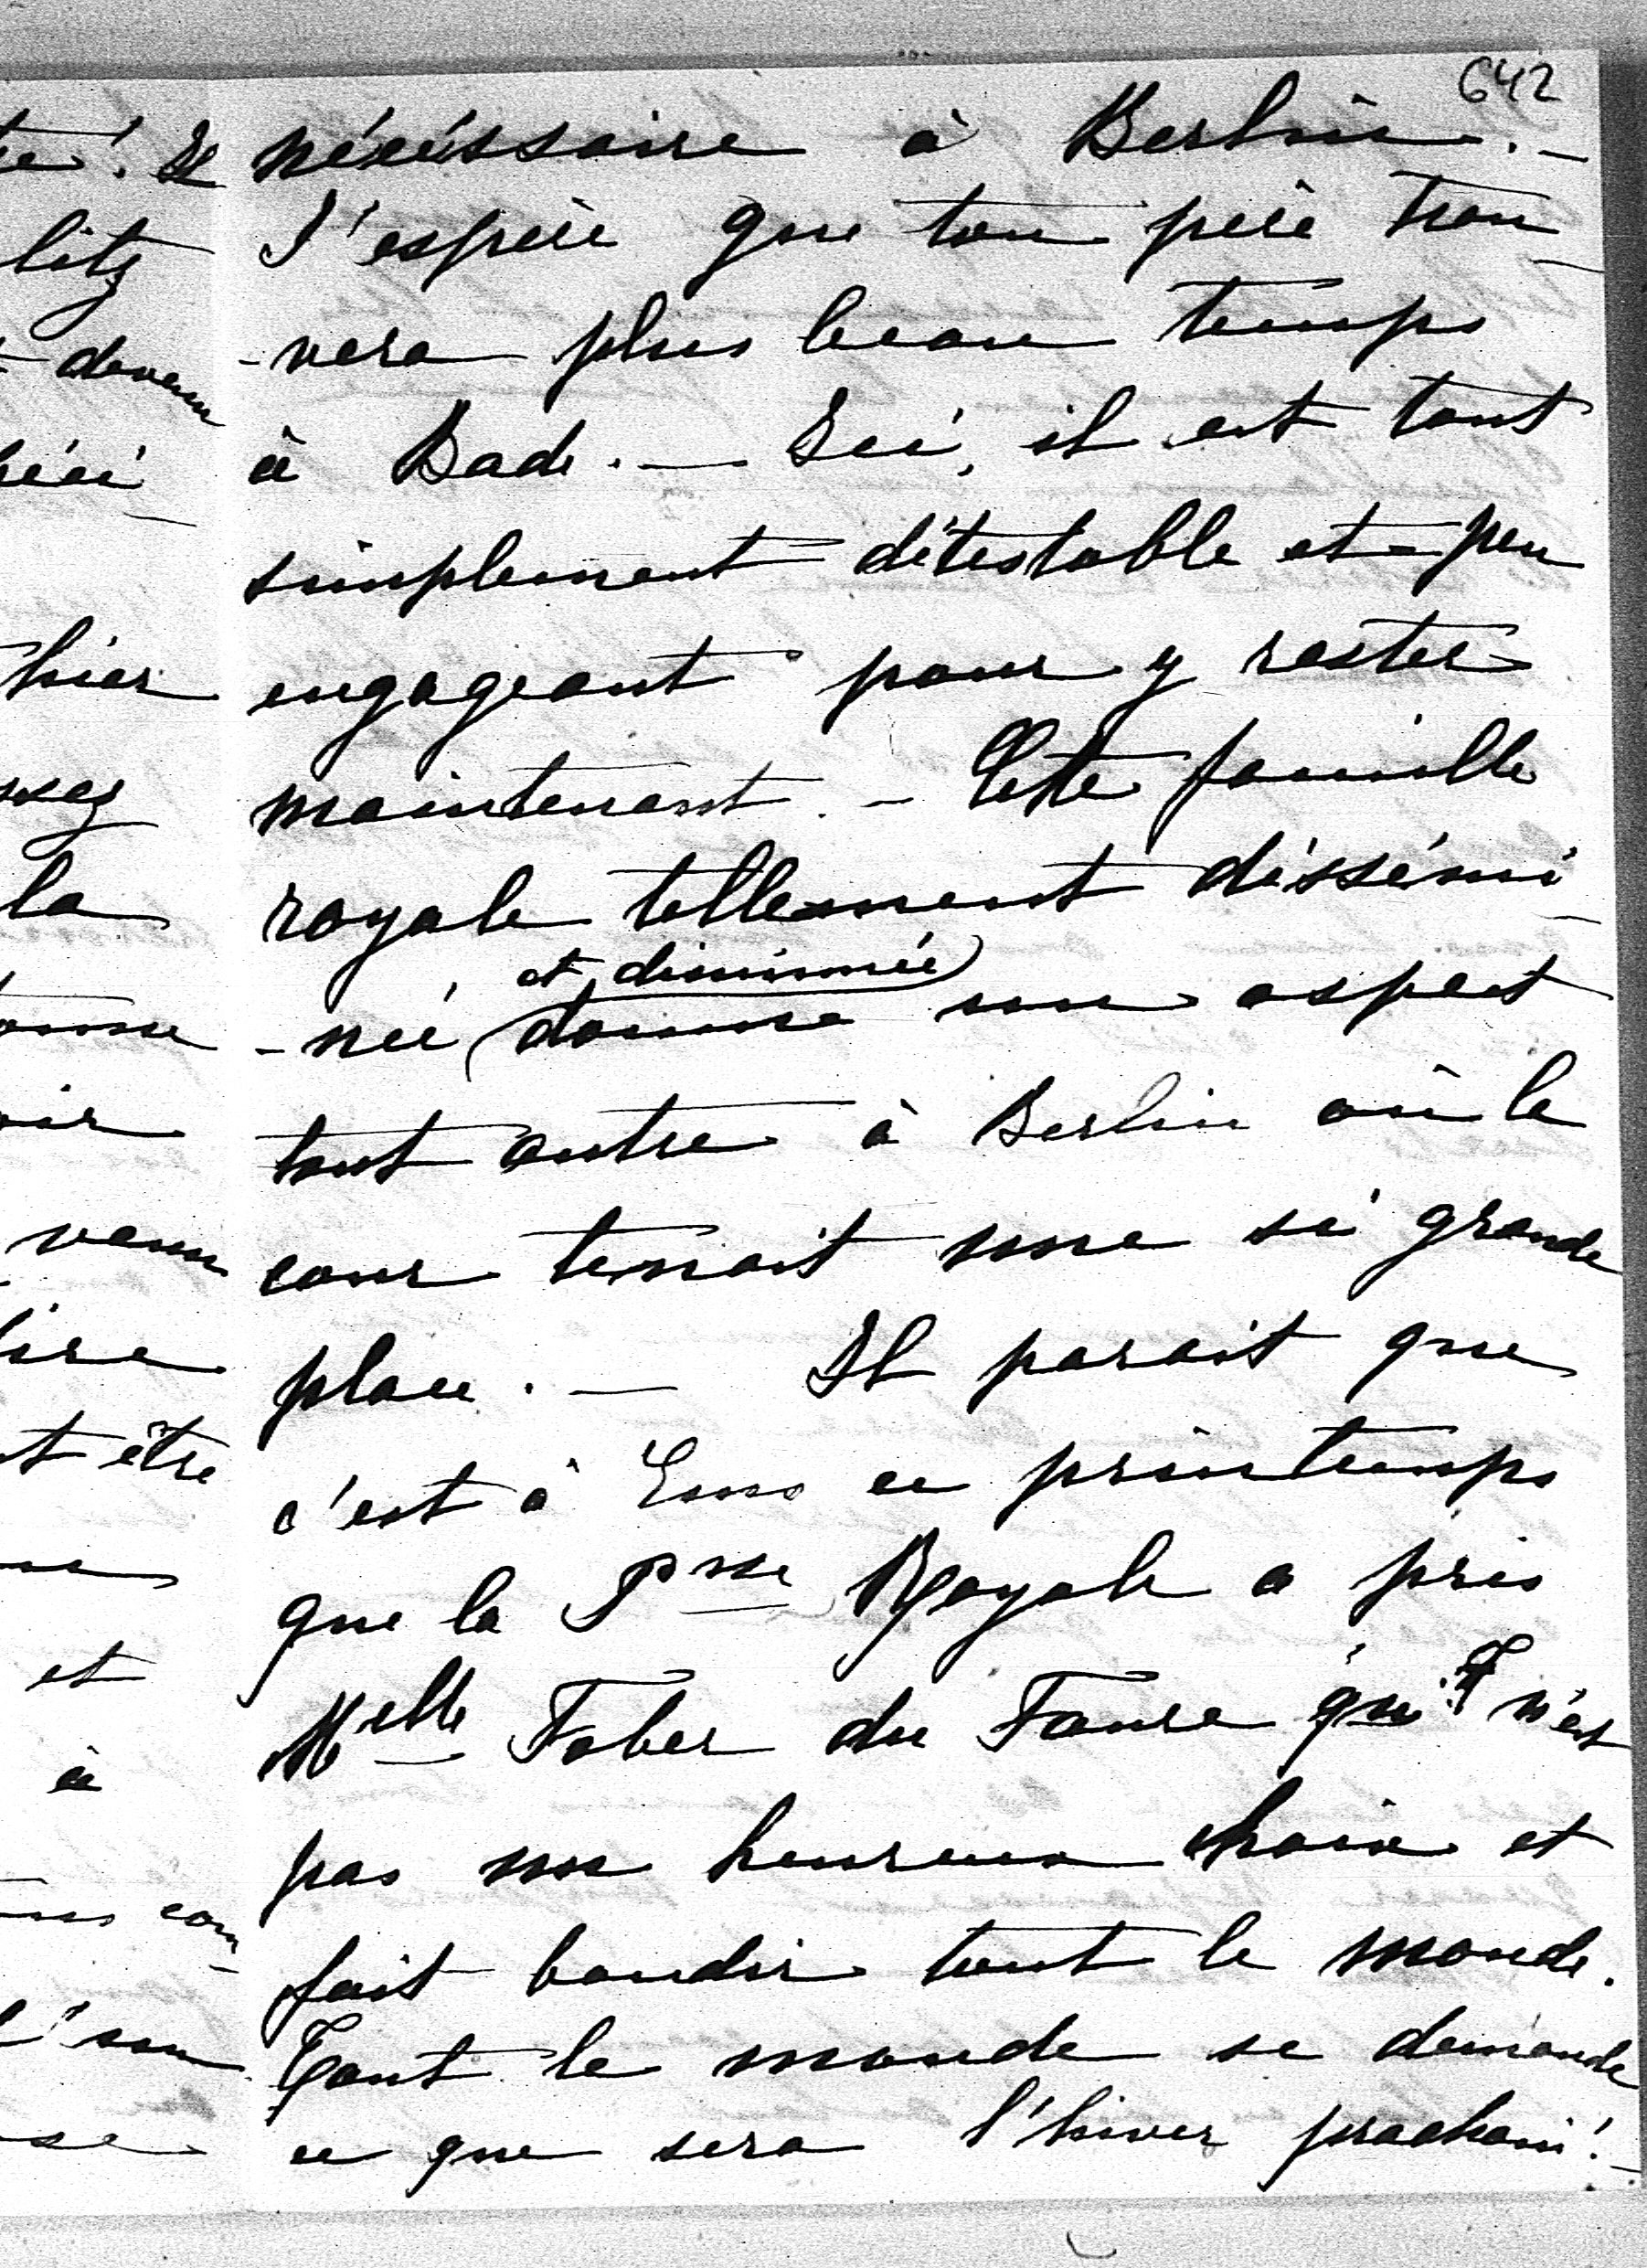 642
nécéssaire à Berlin. –
J'espère que ton père trou
-vera plus beau temps
à Bade. – Ici, il est tout
simplement détestable et peu
engageant pour y rester
maintenant. – Cette famille
royale tellement disśémi
et diminuée
-née donne un aspect
tout autre à Berlin où la
cour tenait une si grande
place. – Il parait que
c'est à Ems ce printemps
que la Psse Royale a pris
Melle Faber du Faure qui n'est
pas un heureux choix et
fait bondir tout le monde.
Tout le monde se demande
ce que sera l'hiver prochain! –
té! Il
litz
devenu
hier
la
venu
être
et
à